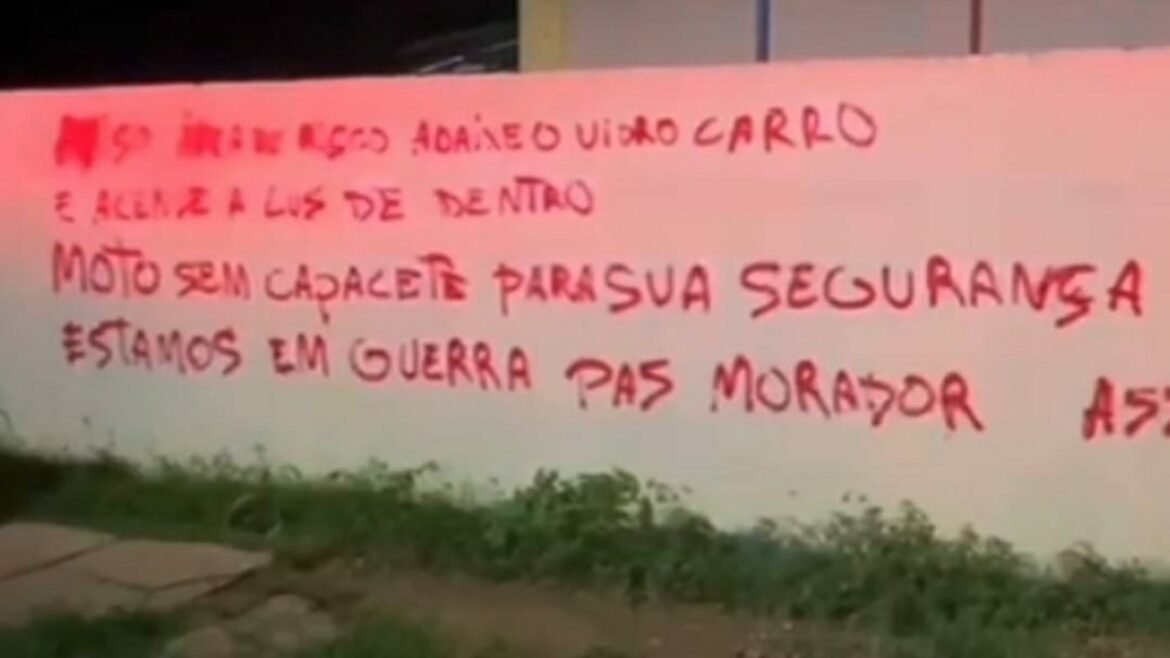 ADAIXE O VIDRO CARRO
E ACENZE A LUS DE DENTRO
MOTO SEM CAPACETE PARA SUA SEGURANÇA
ESTAMOS EM GUERRA PAS MORADOR ASS